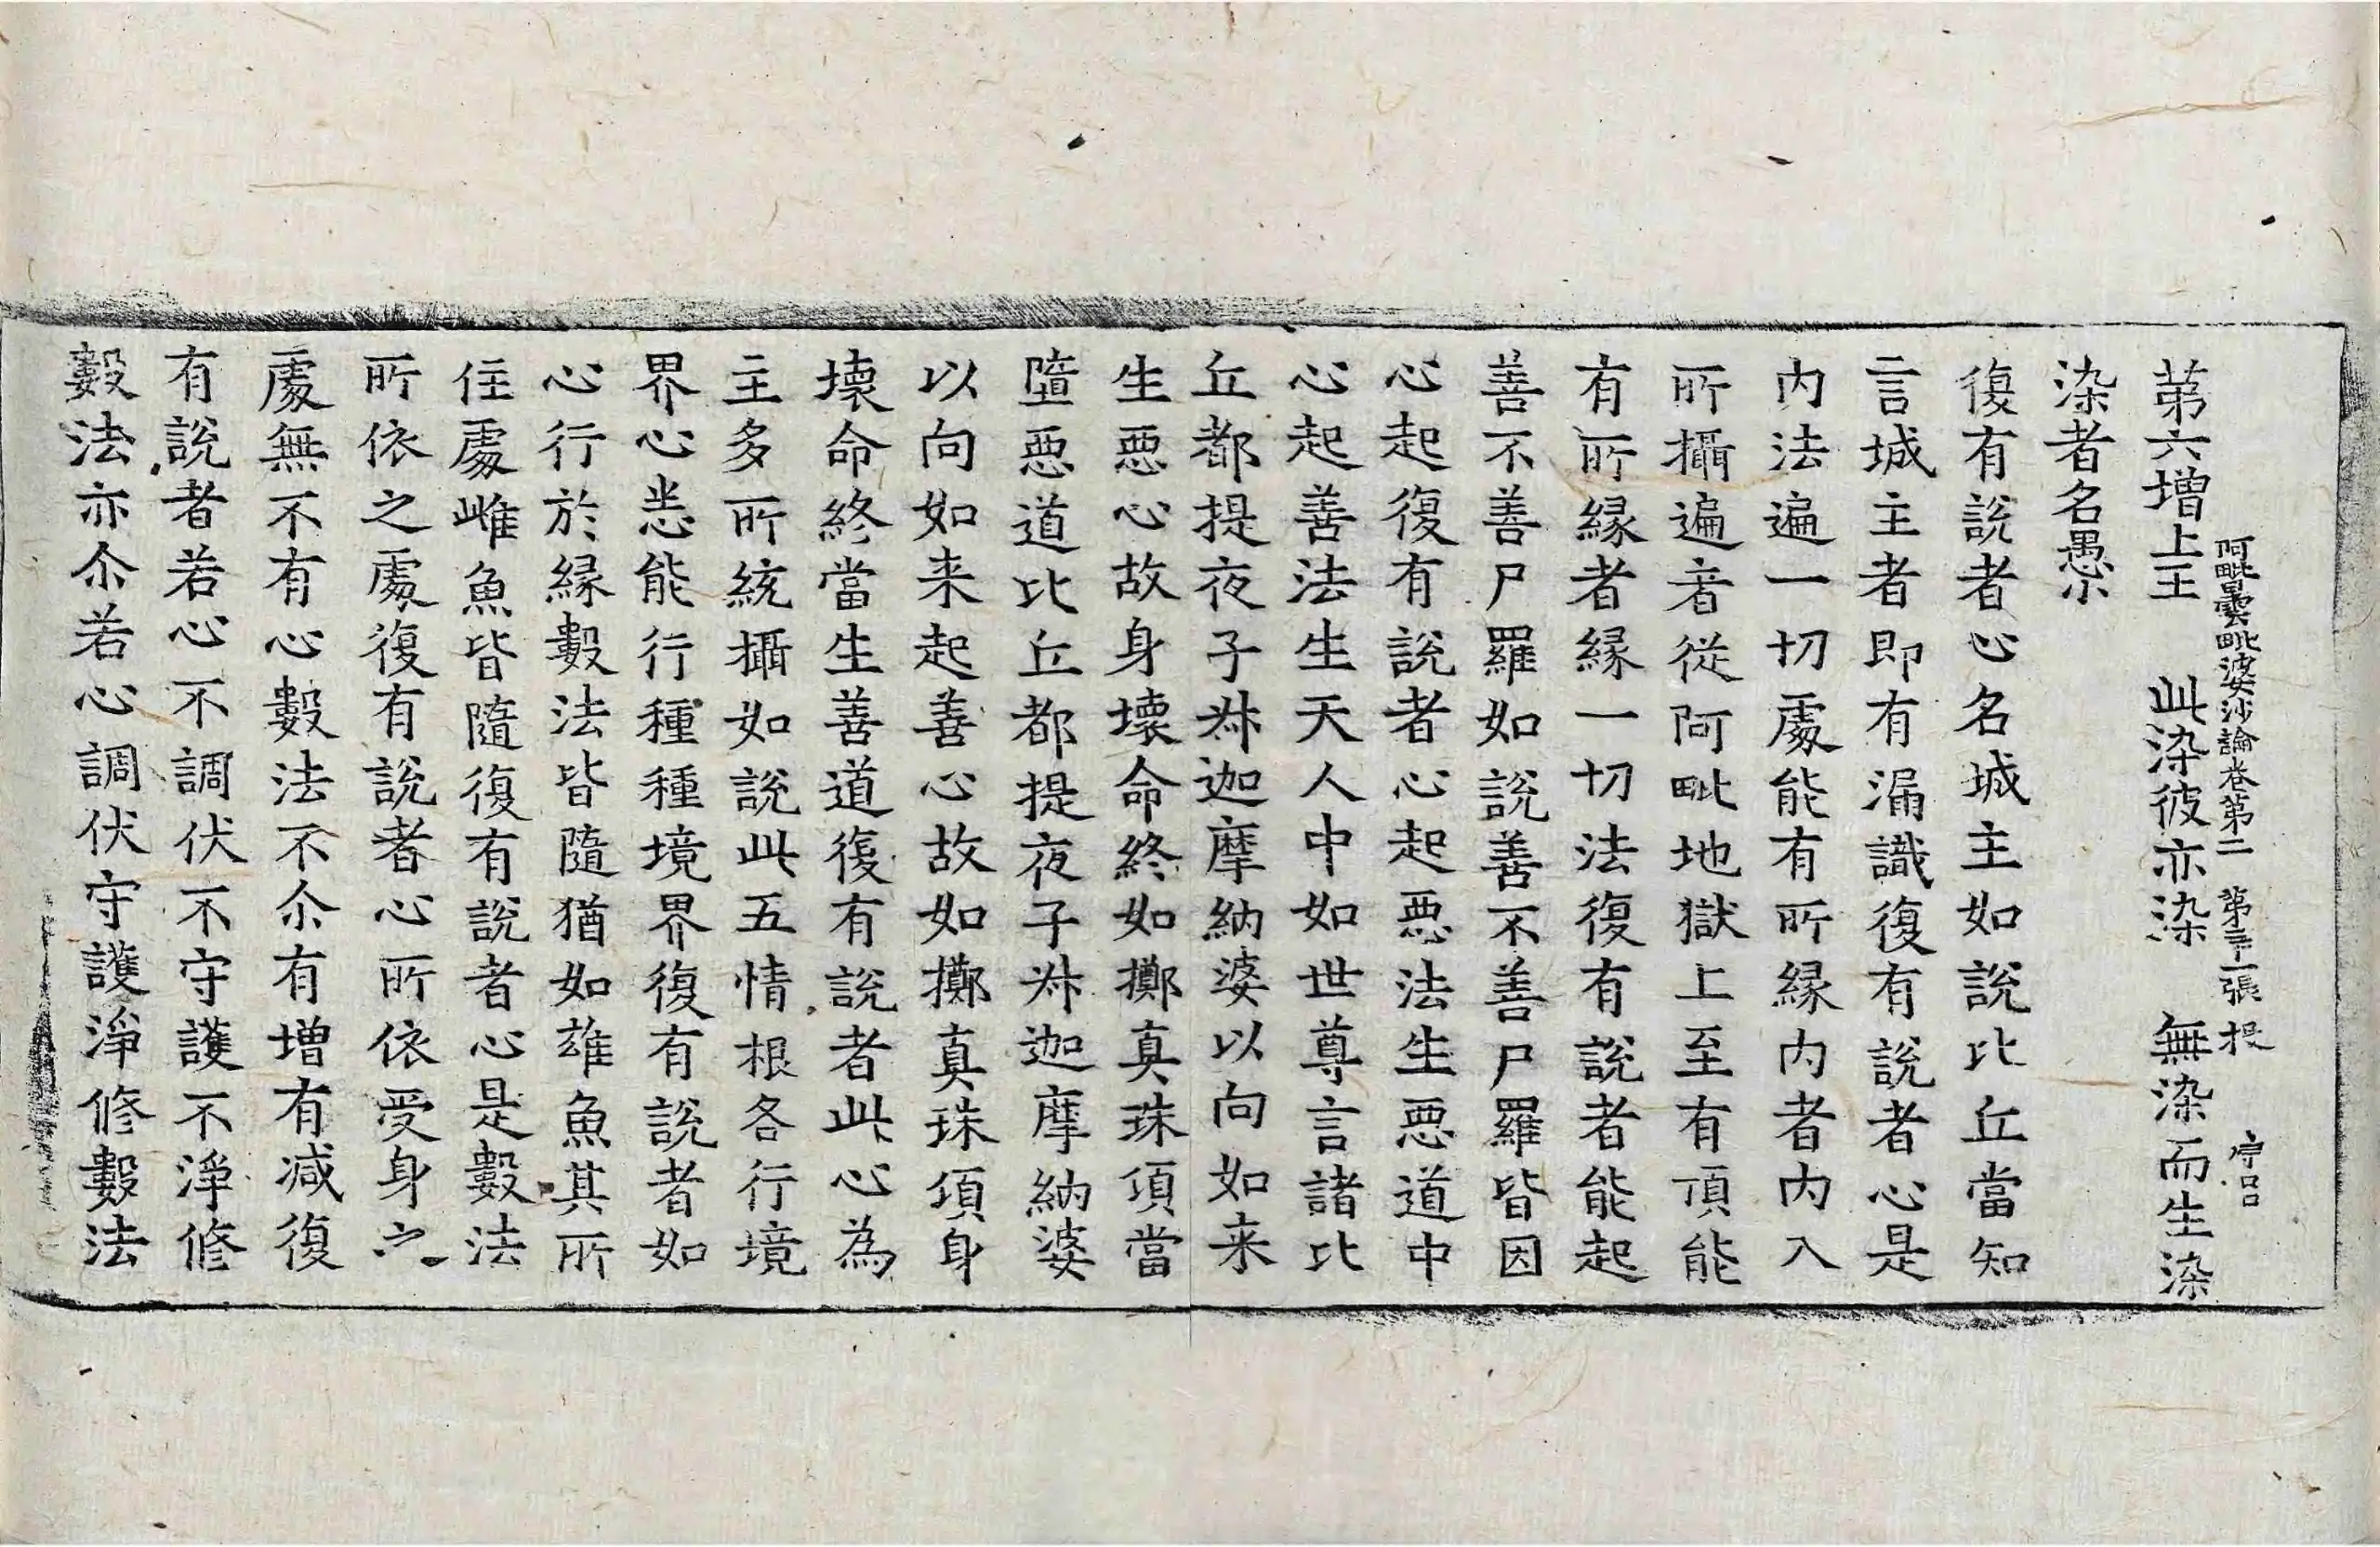 阿毗曇毗婆沙論卷第二 第三十二張 投
第六增上王 此染彼亦染 無染而生染
染者名愚小
復有說者心名城主如說比丘當知
言城主者即有漏識復有說者心是
內法遍一切處能有所緣內者內入
所攝遍者從阿毗地獄上至有頂能
有所緣者緣一切法復有說者能起
善不善尸羅如說善不善尸羅皆因
心起復有說者心起惡法生惡道中
心起善法生天人中如世尊言諸比
丘都提夜子㳤迦摩納婆以向如来
生惡心故身壞命終如擲真珠頃當
墮惡道比丘都提夜子㳤迦摩納婆
以向如来起善心故如擲真珠頃身
壞命終當生善道復有說者此心為
主多所統攝如說此五情根各行境
界心悉能行種種境界復有說者如
心行於緣數法皆隨猶如雄魚其所
住處雌魚皆隨復有說者心是數法
所依之處復有說者心所依受身六
處無不有心數法不尒有增有減復
有說者若心不調伏不守護不淨修
數法亦尒若心調伏守護淨修數法